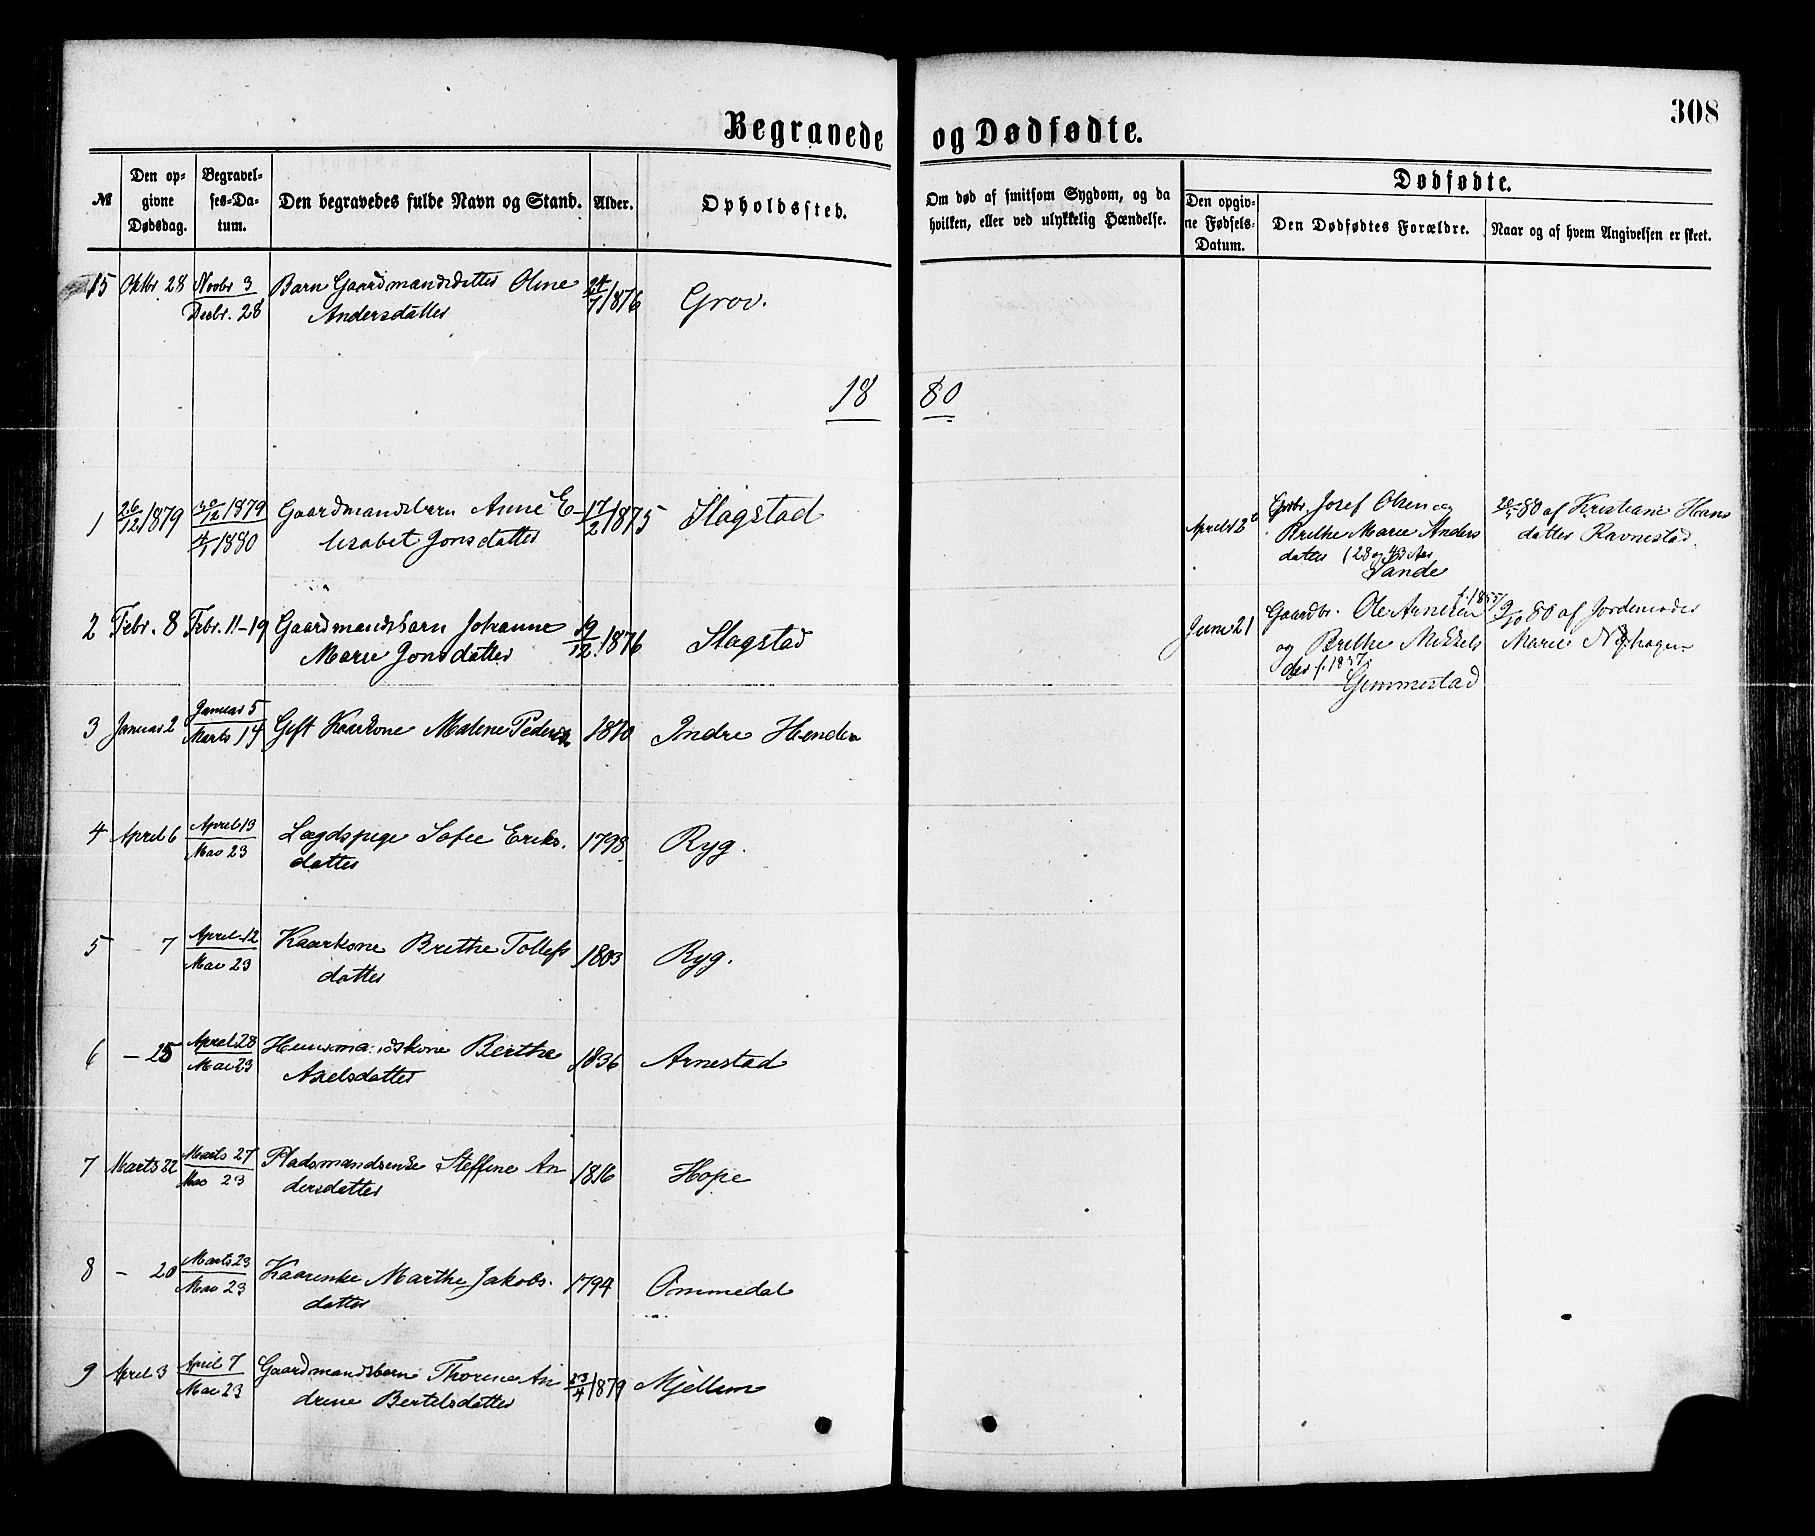 308
Begravede og Dødfødte.
№
Den opgivne Dødsdag.
Begravelses-Datum.
Den begravedes fulde Navn og Stand.
Alder.
Opholdssted.
Om død af smitsom Sygdom, og da
hvilken, eller ved ulykkelig Hændelse.
Dødfødte.
Den opgivne Fødsels-Datum.
Den Dødfødtes Forældre.
Naar og af hvem Angivelsen er skeet.
15 Oktbr 28 Novbr 3 Barn Gaardmandsdatter Oline 24/7 1876 Grov.
Decbr. 28 Andersdatter
18 80
1 26/12 1879 30/12 1879 Gaardmandsbarn Anne E- 17/2 1875 Slagstad
4/1 1880 lisabet Jonsdatter
2 Febr. 8 Febr. 11-19 Gaardmandsbarn Johanne 19/12 1876 Slagstad
Marie Jonsdatter
3 Januar 2 Januar 5 Gift Kaarkone Malene Peders 1810 Indre Henden
Marts 14
4 April 6 April 13 Lægdspige Sofie Eriks. 1798 Ryg.
Mai 23 datter
5 - 7 April 12 Kaarkone Brethe Tollefs 1803 Ryg.
Mai 23 datter
6 - 25 April 28 Huusmandskone Berthe 1836 Arnestad
Mai 23 Axelsdatter
7 Marts 22 Marts 27 Pladsmandsenke Steffine An 1816 Hope
Mai 23 dersdatter
8 - 20 Marts 23 Kaarenke Marthe Jakobs. 1794 Ommedal
Mai 23 datter
9 April 3 April 7 Gaardmandsbarn Thorine An 23/4 1879 Mjellem
Mai 23 drine Bertelsdatter
April 12te Grbr. Josef Olsen og
Brethe Marie Anders
datter (28 og 43 Aar
Sande
80 af Kristiane Hans
datter Ravnestad.
Juni 21 Gaardbr. Ole Arnesen
og Brethe Mikkels
dtr f. 1837
Gemmestad
9/10 80 af Jordemoder
Marie Nyhagen